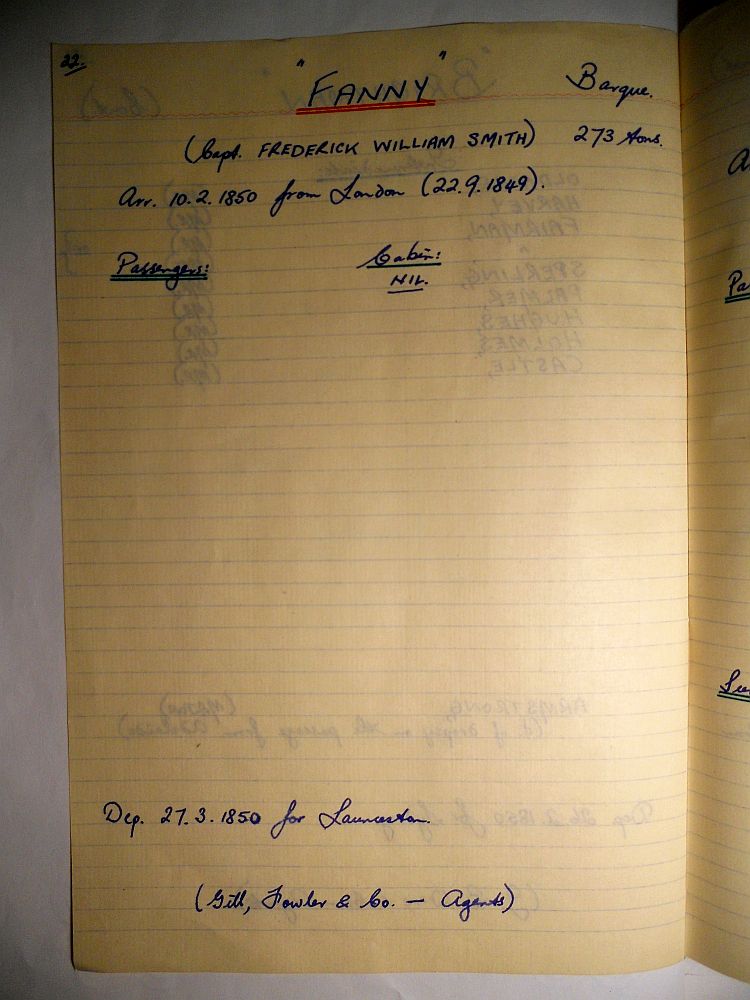 22.
"FANNY" Barque.
(Capt. FREDERICK WILLIAM SMITH) 273 tons.
Arr. 10.2.1850 from London (22.9.1849).
Passengers: Cabin:
NIL.
Dep. 27.3.1850 for Launceston.
(Gill, Fowler & Co. — Agents)